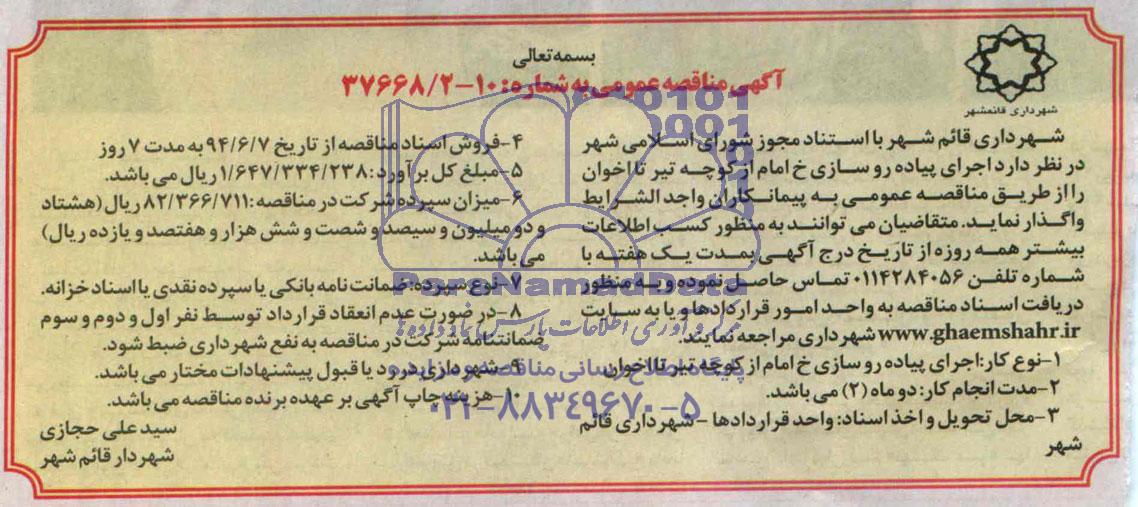 بسمه تعالی
آگهی مناقصه عمومی به شماره: ۱۰-۳۷۶۶۸/۲
شهرداری قائمشهر
شهرداری قائم شهر با استناد مجوز شورای اسلامی شهر
در نظر دارد اجرای پیاده رو سازی خ امام از کوچه تیر تا اخوان
را از طریق مناقصه عمومی به پیمانکاران واجد الشرایط
واگذار نماید. متقاضیان می توانند به منظور کسب اطلاعات
بیشتر همه روزه از تاریخ درج آگهی بمدت یک هفته با
شماره تلفن ۰۱۱۴۲۸۴۰۵۶ تماس حاصل نموده و به منظور
دریافت اسناد مناقصه به واحد امور قراردادها و یا به سایت
www.ghaemshahr.ir شهرداری مراجعه نمایند.
۱-نوع کار: اجرای پیاده رو سازی خ امام از کوچه تیر تا اخوان
۲-مدت انجام کار: دو ماه (۲) می باشد.
۳-محل تحویل و اخذ اسناد: واحد قراردادها - شهرداری قائم
شهر
۴-فروش اسناد مناقصه از تاریخ ۹۴/۶/۷ به مدت ۷ روز
۵-مبلغ کل برآورد: ۱/۶۴۷/۳۳۴/۲۳۸ ریال می باشد.
۶-میزان سپرده شرکت در مناقصه: ۸۲/۳۶۶/۷۱۱ ریال (هشتاد
و دو میلیون و سیصد و شصت و شش هزار و هفتصد و یازده ریال)
می باشد.
۷-نوع سپرده: ضمانت نامه بانکی یا سپرده نقدی یا اسناد خزانه.
۸-در صورت عدم انعقاد قرارداد توسط نفر اول و دوم و سوم
ضمانتنامه شرکت در مناقصه به نفع شهرداری ضبط شود.
۹-شهرداری در رد یا قبول پیشنهادات مختار می باشد.
۱۰-هزینه چاپ آگهی بر عهده برنده مناقصه می باشد.
سید علی حجازی
شهردار قائم شهر
ParsNamadData
پایگاه اطلاع رسانی مناقصه و مزایده
۰۲۱-۸۸۳۴۹۶۷۰-۵